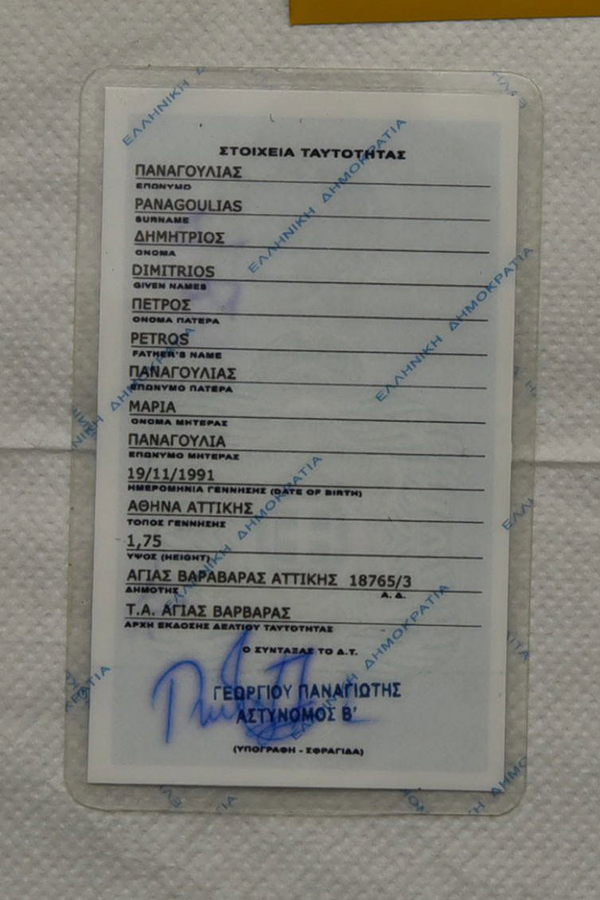 ΣΤΟΙΧΕΙΑ ΤΑΥΤΟΤΗΤΑΣ
ΠΑΝΑΓΟΥΛΙΑΣ
ΕΠΩΝΥΜΟ
PANAGOULIAS
SURNAME
ΔΗΜΗΤΡΙΟΣ
ΟΝΟΜΑ
DIMITRIOS
GIVEN NAMES
ΠΕΤΡΟΣ
ΟΝΟΜΑ ΠΑΤΕΡΑ
PETROS
FATHER'S NAME
ΠΑΝΑΓΟΥΛΙΑΣ
ΕΠΩΝΥΜΟ ΠΑΤΕΡΑ
ΜΑΡΙΑ
ΟΝΟΜΑ ΜΗΤΕΡΑΣ
ΠΑΝΑΓΟΥΛΙΑ
ΕΠΩΝΥΜΟ ΜΗΤΕΡΑΣ
19/11/1991
ΗΜΕΡΟΜΗΝΙΑ ΓΕΝΝΗΣΗΣ (DATE OF BIRTH)
ΑΘΗΝΑ ΑΤΤΙΚΗΣ
ΤΟΠΟΣ ΓΕΝΝΗΣΗΣ
1,75
ΥΨΟΣ (HEIGHT)
ΑΓΙΑΣ ΒΑΡΑΒΑΡΑΣ ΑΤΤΙΚΗΣ 18765/3
ΔΗΜΟΤΗΣ Α. Δ.
Τ.Α. ΑΓΙΑΣ ΒΑΡΒΑΡΑΣ
ΑΡΧΗ ΕΚΔΟΣΗΣ ΔΕΛΤΙΟΥ ΤΑΥΤΟΤΗΤΑΣ
Ο ΣΥΝΤΑΞΑΣ ΤΟ Δ.Τ.
ΓΕΩΡΓΙΟΥ ΠΑΝΑΓΙΩΤΗΣ
ΑΣΤΥΝΟΜΟΣ Β'
(ΥΠΟΓΡΑΦΗ - ΣΦΡΑΓΙΔΑ)
ΕΛΛΗΝΙΚΗ ΔΗΜΟΚΡΑΤΙΑ
ΕΛΛΗΝΙΚΗ ΔΗΜΟΚΡΑΤΙΑ
ΕΛΛΗΝΙΚΗ ΔΗΜΟΚΡΑΤΙΑ
ΕΛΛΗΝΙΚΗ ΔΗΜΟΚΡΑΤΙΑ